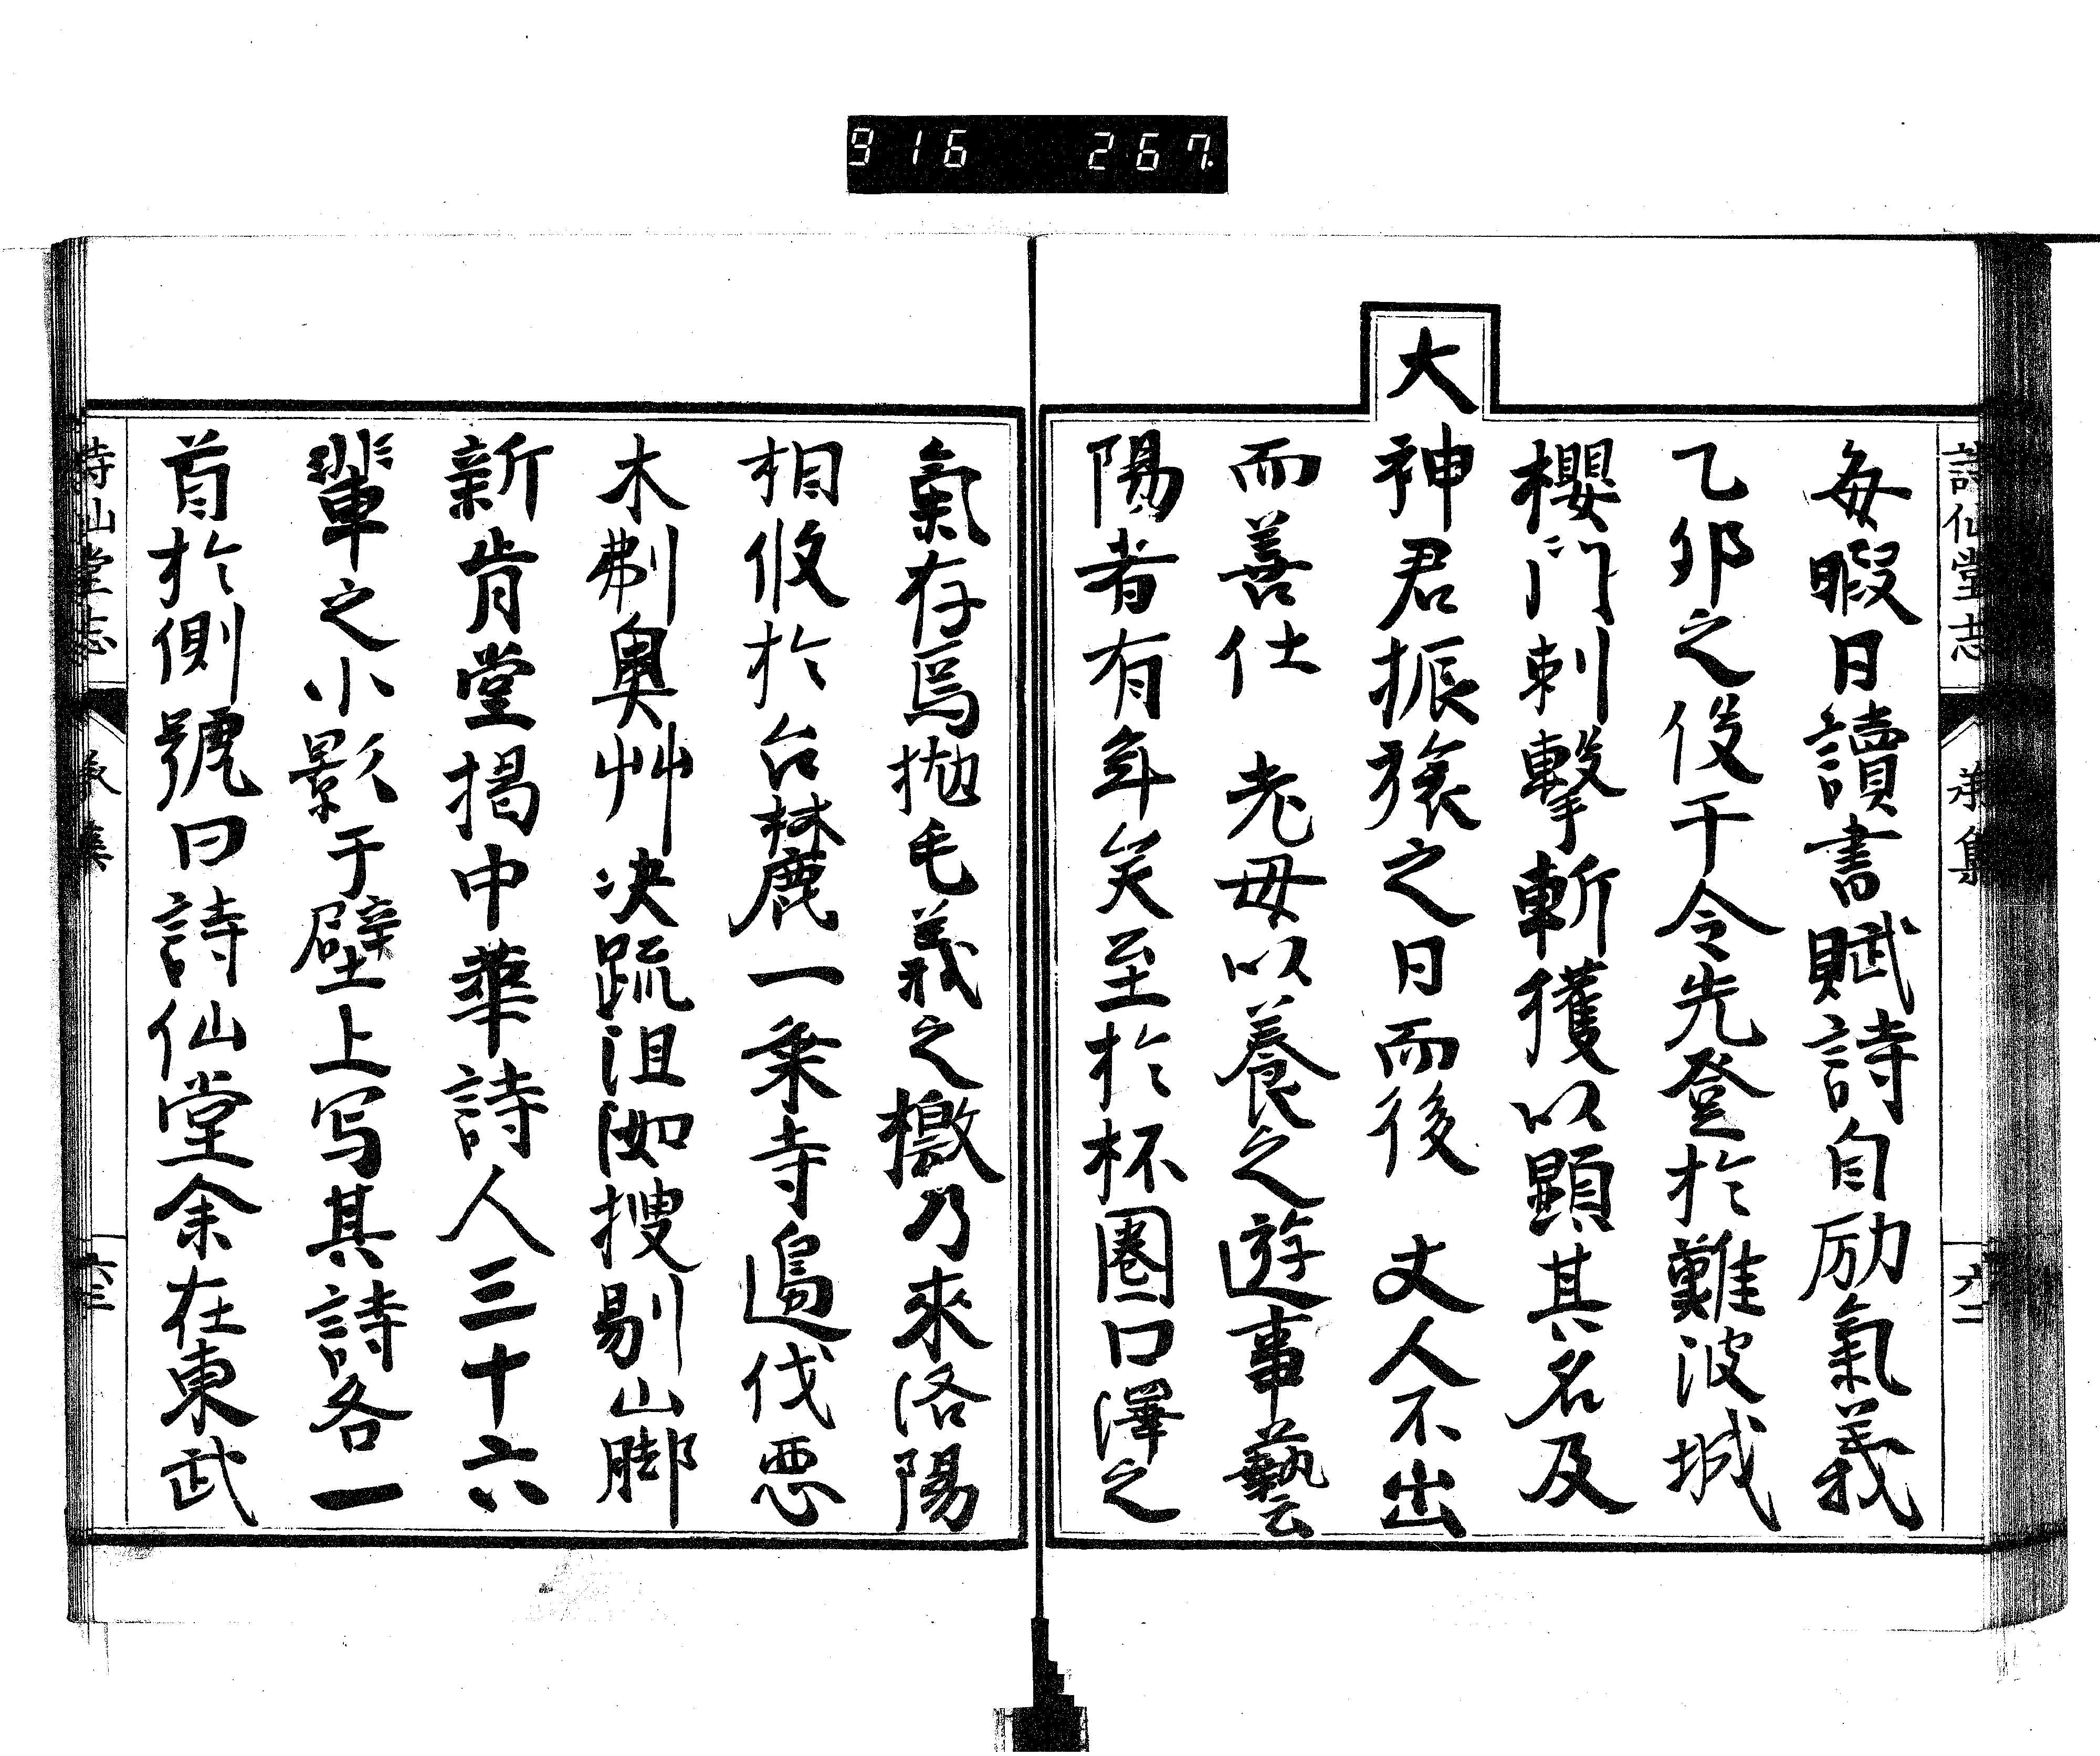 916 267
詩仙堂志
六二
每暇日讀書賦詩自励氣義
乙夘之役干令先登於難波城
櫻門刺擊斬獲以顯其名及
大神君振旅之日而後 丈人不出
而善仕 老母以養之遊事藝
陽者有年矣至於杯圈口澤之
氣存焉抛毛義之檄乃來洛陽
相攸於台麓一乗寺邊伐惡
木刜奥艸决疏沮洳搜剔山脚
新肯堂揭中華詩人三十六
輩之小影于壁上写其詩各一
首於側號曰詩仙堂余在東武
詩仙堂志
六三